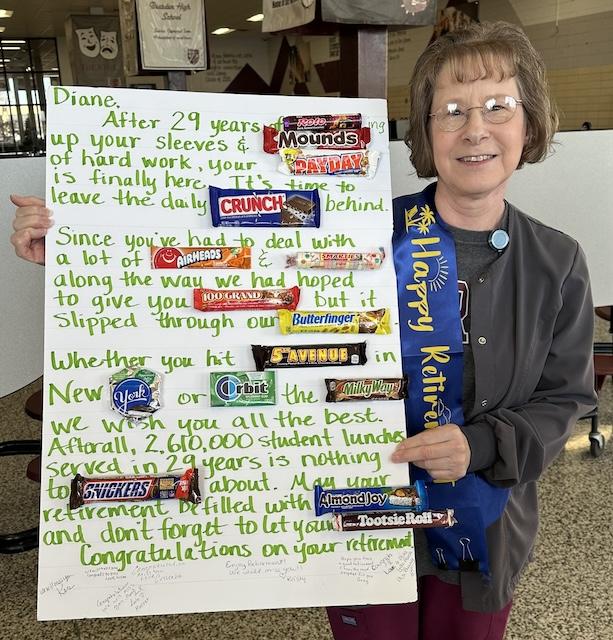 Diane,
After 29 years of ROLO ing
up your sleeves & Mounds
of hard work, your PAYDAY
is finally here. It's time to
leave the daily CRUNCH behind.
Since you've had to deal with
a lot of AIRHEADS & SMARTIES
along the way we had hoped
to give you 100 GRAND but it
slipped through our Butterfinger
Whether you hit 5th AVENUE in
New York or Orbit the MilkyWay
we wish you all the best.
Afterall, 2,610,000 student lunches
served in 29 years is nothing
to SNICKERS about. May your
retirement be filled with Almond Joy
and don't forget to let your Tootsie Roll
Congratulations on your retirement
Enjoy Retirement!
Kristy
Happy Retirem